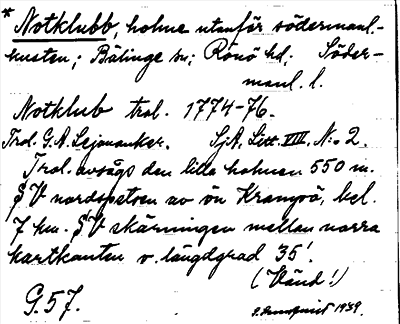 * Notklubb, holme utanför södermanl.-
kusten; Bälinge sn; Rönö hd; Söder-
manl. l.
Notklub trol. 1774-76.
Trol. G.A. Lejonanker. SjA, Litt. VIII, No 2.
Trol. avsågs den lilla holmen 550 m.
SV nordspetsen av ön Kransö, bel.
7 km. SV skärningen mellan norra
kartkanten o. längdgrad 35'.
(Vänd!)
G.57.
1939.